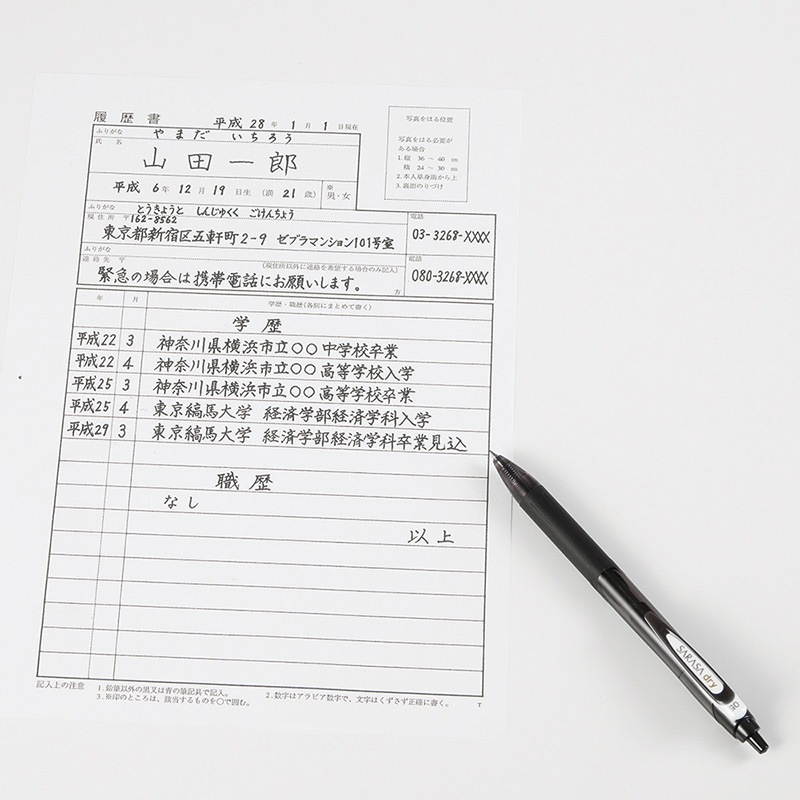 履歴書 平成 28 年 1 月 1 日現在
ふりがな やまだ いちろう
氏名 山田一郎
平成 6 年 12 月 19 日生 (満 21 歳) ※ 男・女
写真をはる位置
写真をはる必要が
ある場合
1.縦 36 ~ 40 ㎜
横 24 ~ 30 ㎜
2.本人単身胸から上
3.裏面のりづけ
ふりがな とうきょうと しんじゅくく ごけんちょう 電話
現住所 〒162-8562
東京都新宿区五軒町2-9 ゼブラマンション101号室 03-3268-XXXX
ふりがな 電話
連絡先 〒 (現住所以外に連絡を希望する場合のみ記入)
緊急の場合は携帯電話にお願いします。 方 080-3268-XXXX
年 月 学歴・職歴(各別にまとめて書く)
学歴
平成22 3 神奈川県横浜市立○○中学校卒業
平成22 4 神奈川県横浜市立○○高等学校入学
平成25 3 神奈川県横浜市立○○高等学校卒業
平成25 4 東京縞馬大学 経済学部経済学科入学
平成29 3 東京縞馬大学 経済学部経済学科卒業見込
職歴
なし
以上
記入上の注意 1.鉛筆以外の黒又は青の筆記具で記入。 2.数字はアラビア数字で、文字はくずさず正確に書く。
3.※印のところは、該当するものを○で囲む。 T
SARASA dry 0.5